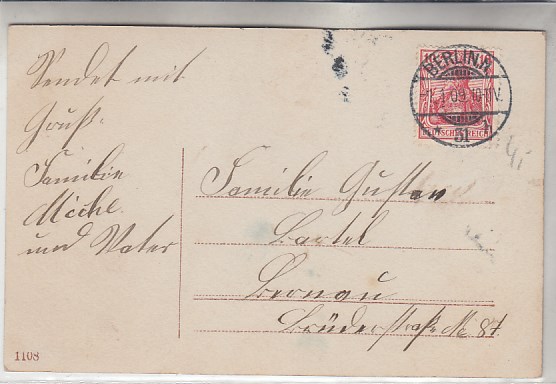 Sendet mit
Gruß.
Familie
und Vater
BERLIN.N.
-1.1.09.10-11V.
* 31 i
DEUTSCHES REICH
Familie Gustav
Bartel
Bernau
Brüderstraße No 87
1108